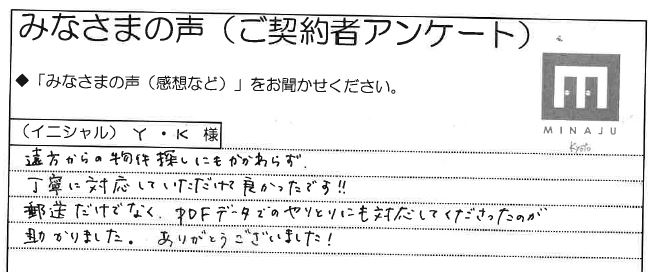 みなさまの声（ご契約者アンケート）
◆「みなさまの声（感想など）」をお聞かせください。
MINAJU
Kyoto
（イニシャル） Y ・ K 様
遠方からの物件探しにもかかわらず、
丁寧に対応していただけて良かったです!!
郵送だけでなく、PDFデータでのやりとりにも対応してくださったのが
助かりました。 ありがとうございました!